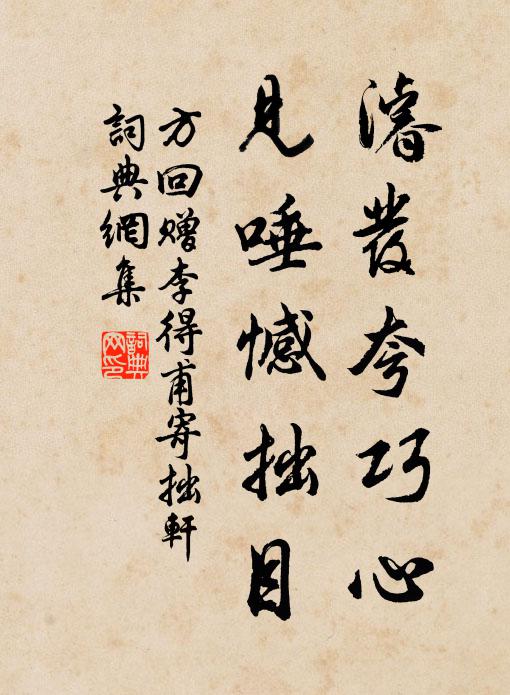 濬發夸巧心
見唾憾拙目
方回赠李得甫寄拙軒
詞典網集
詞典網印